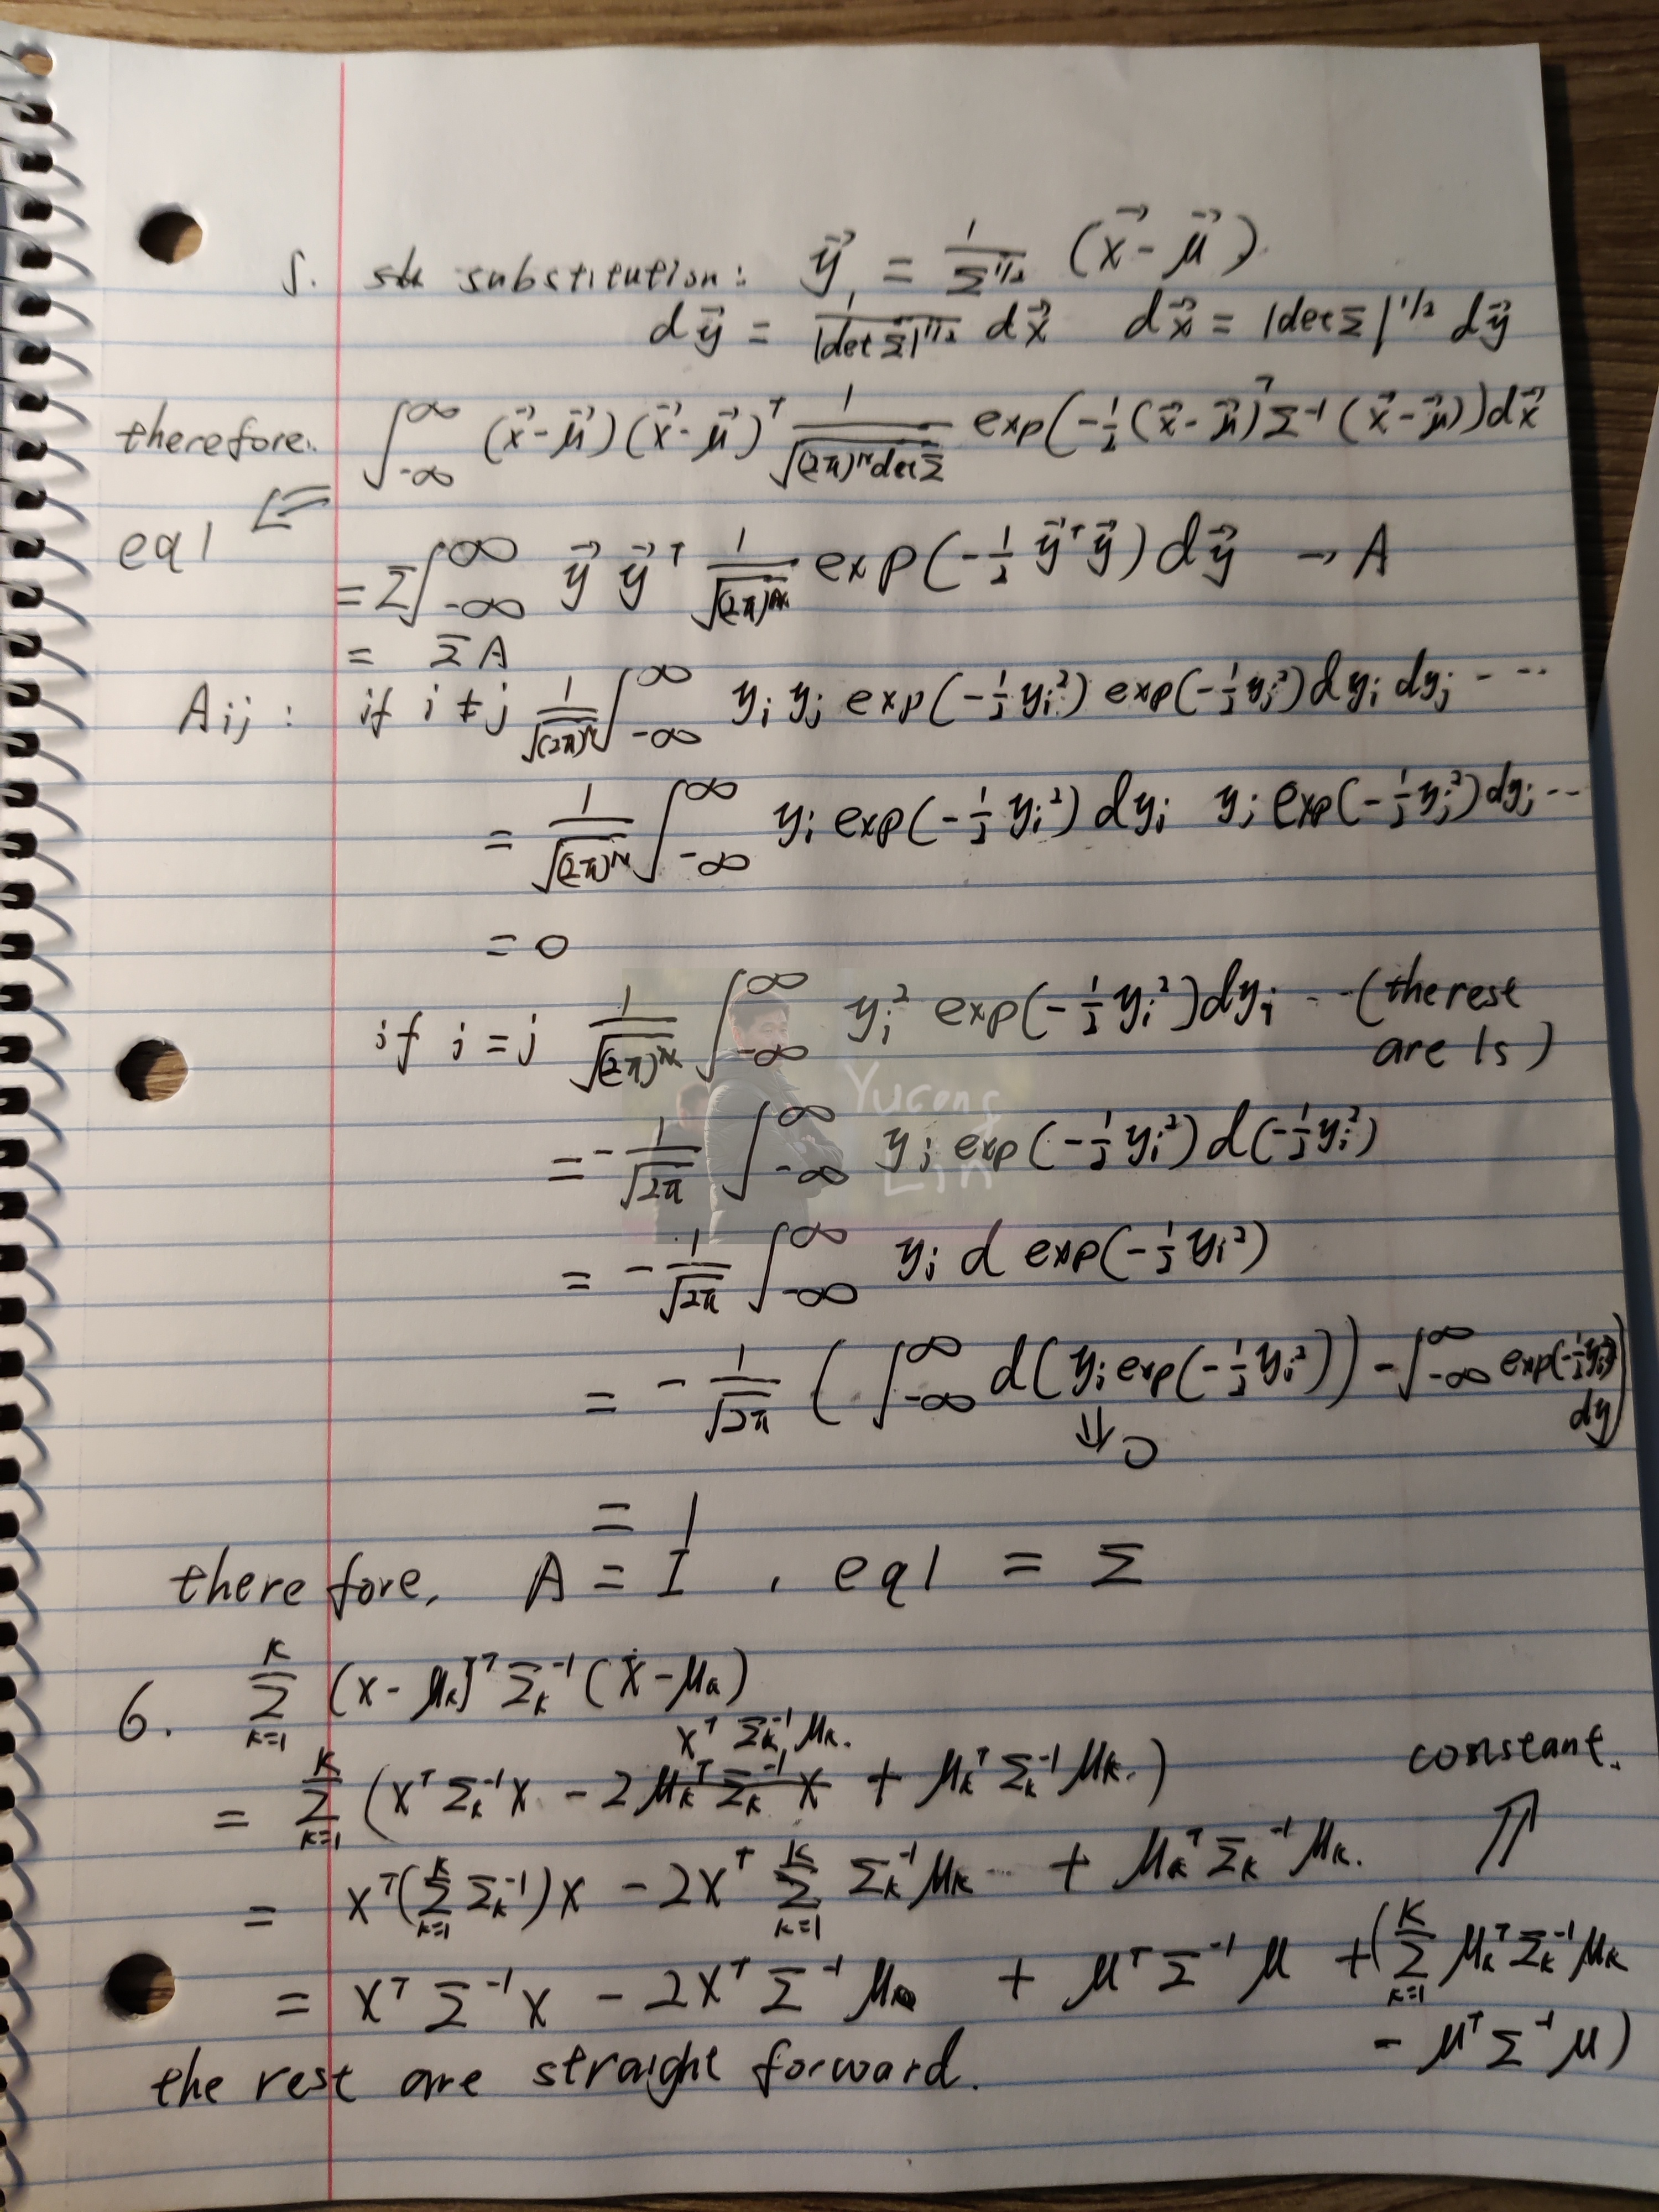 5. substitution: y⃗ = 1/Σ^{1/2} (x⃗ - μ⃗)
dy⃗ = 1/|det Σ|^{1/2} dx⃗   dx⃗ = |det Σ|^{1/2} dy⃗
therefore. ∫_{-∞}^{∞} (x⃗-μ⃗)(x⃗-μ⃗)^T 1/√((2π)^N det Σ) exp(-1/2 (x⃗-μ⃗)^T Σ^{-1} (x⃗-μ⃗)) dx⃗
eq1 ⇐
= Σ∫_{-∞}^{∞} y⃗ y⃗^T 1/√((2π)^N) exp(-1/2 y⃗^T y⃗) dy⃗ → A
= ΣA
Aij : if i ≠ j 1/√((2π)^N) ∫_{-∞}^{∞} y_i y_j exp(-1/2 y_i^2) exp(-1/2 y_j^2) dy_i dy_j - - --
= 1/√((2π)^N) ∫_{-∞}^{∞} y_i exp(-1/2 y_i^2) dy_i y_j exp(-1/2 y_j^2) dy_j --
= 0
if i = j 1/√((2π)^N) ∫_{-∞}^{∞} y_i^2 exp(-1/2 y_i^2) dy_i -- (the rest
are 1s)
Yucong
= - 1/√(2π) ∫_{-∞}^{∞} y_i exp(-1/2 y_i^2) d(-1/2 y_i^2)
Lin
= - 1/√(2π) ∫_{-∞}^{∞} y_i d exp(-1/2 y_i^2)
= - 1/√(2π) ( ∫_{-∞}^{∞} d(y_i exp(-1/2 y_i^2)) - ∫_{-∞}^{∞} exp(-1/2 y_i^2)
dy)
⇓ 0
= 1
therefore, A = I , eq1 = Σ
6. Σ_{k=1}^{K} (x - μ_k)^T Σ_k^{-1} (x - μ_k)
x^T Σ_k^{-1} μ_k.
= Σ_{k=1}^{K} (x^T Σ_k^{-1} x - 2 μ_k^T Σ_k^{-1} x + μ_k^T Σ_k^{-1} μ_k.)
constant.
⇑
= x^T (Σ_{k=1}^{K} Σ_k^{-1}) x - 2x^T Σ_{k=1}^{K} Σ_k^{-1} μ_k + μ_k^T Σ_k^{-1} μ_k.
= x^T Σ^{-1} x - 2x^T Σ^{-1} μ + μ^T Σ^{-1} μ + (Σ_{k=1}^{K} μ_k^T Σ_k^{-1} μ_k
- μ^T Σ^{-1} μ)
the rest are straight forward.